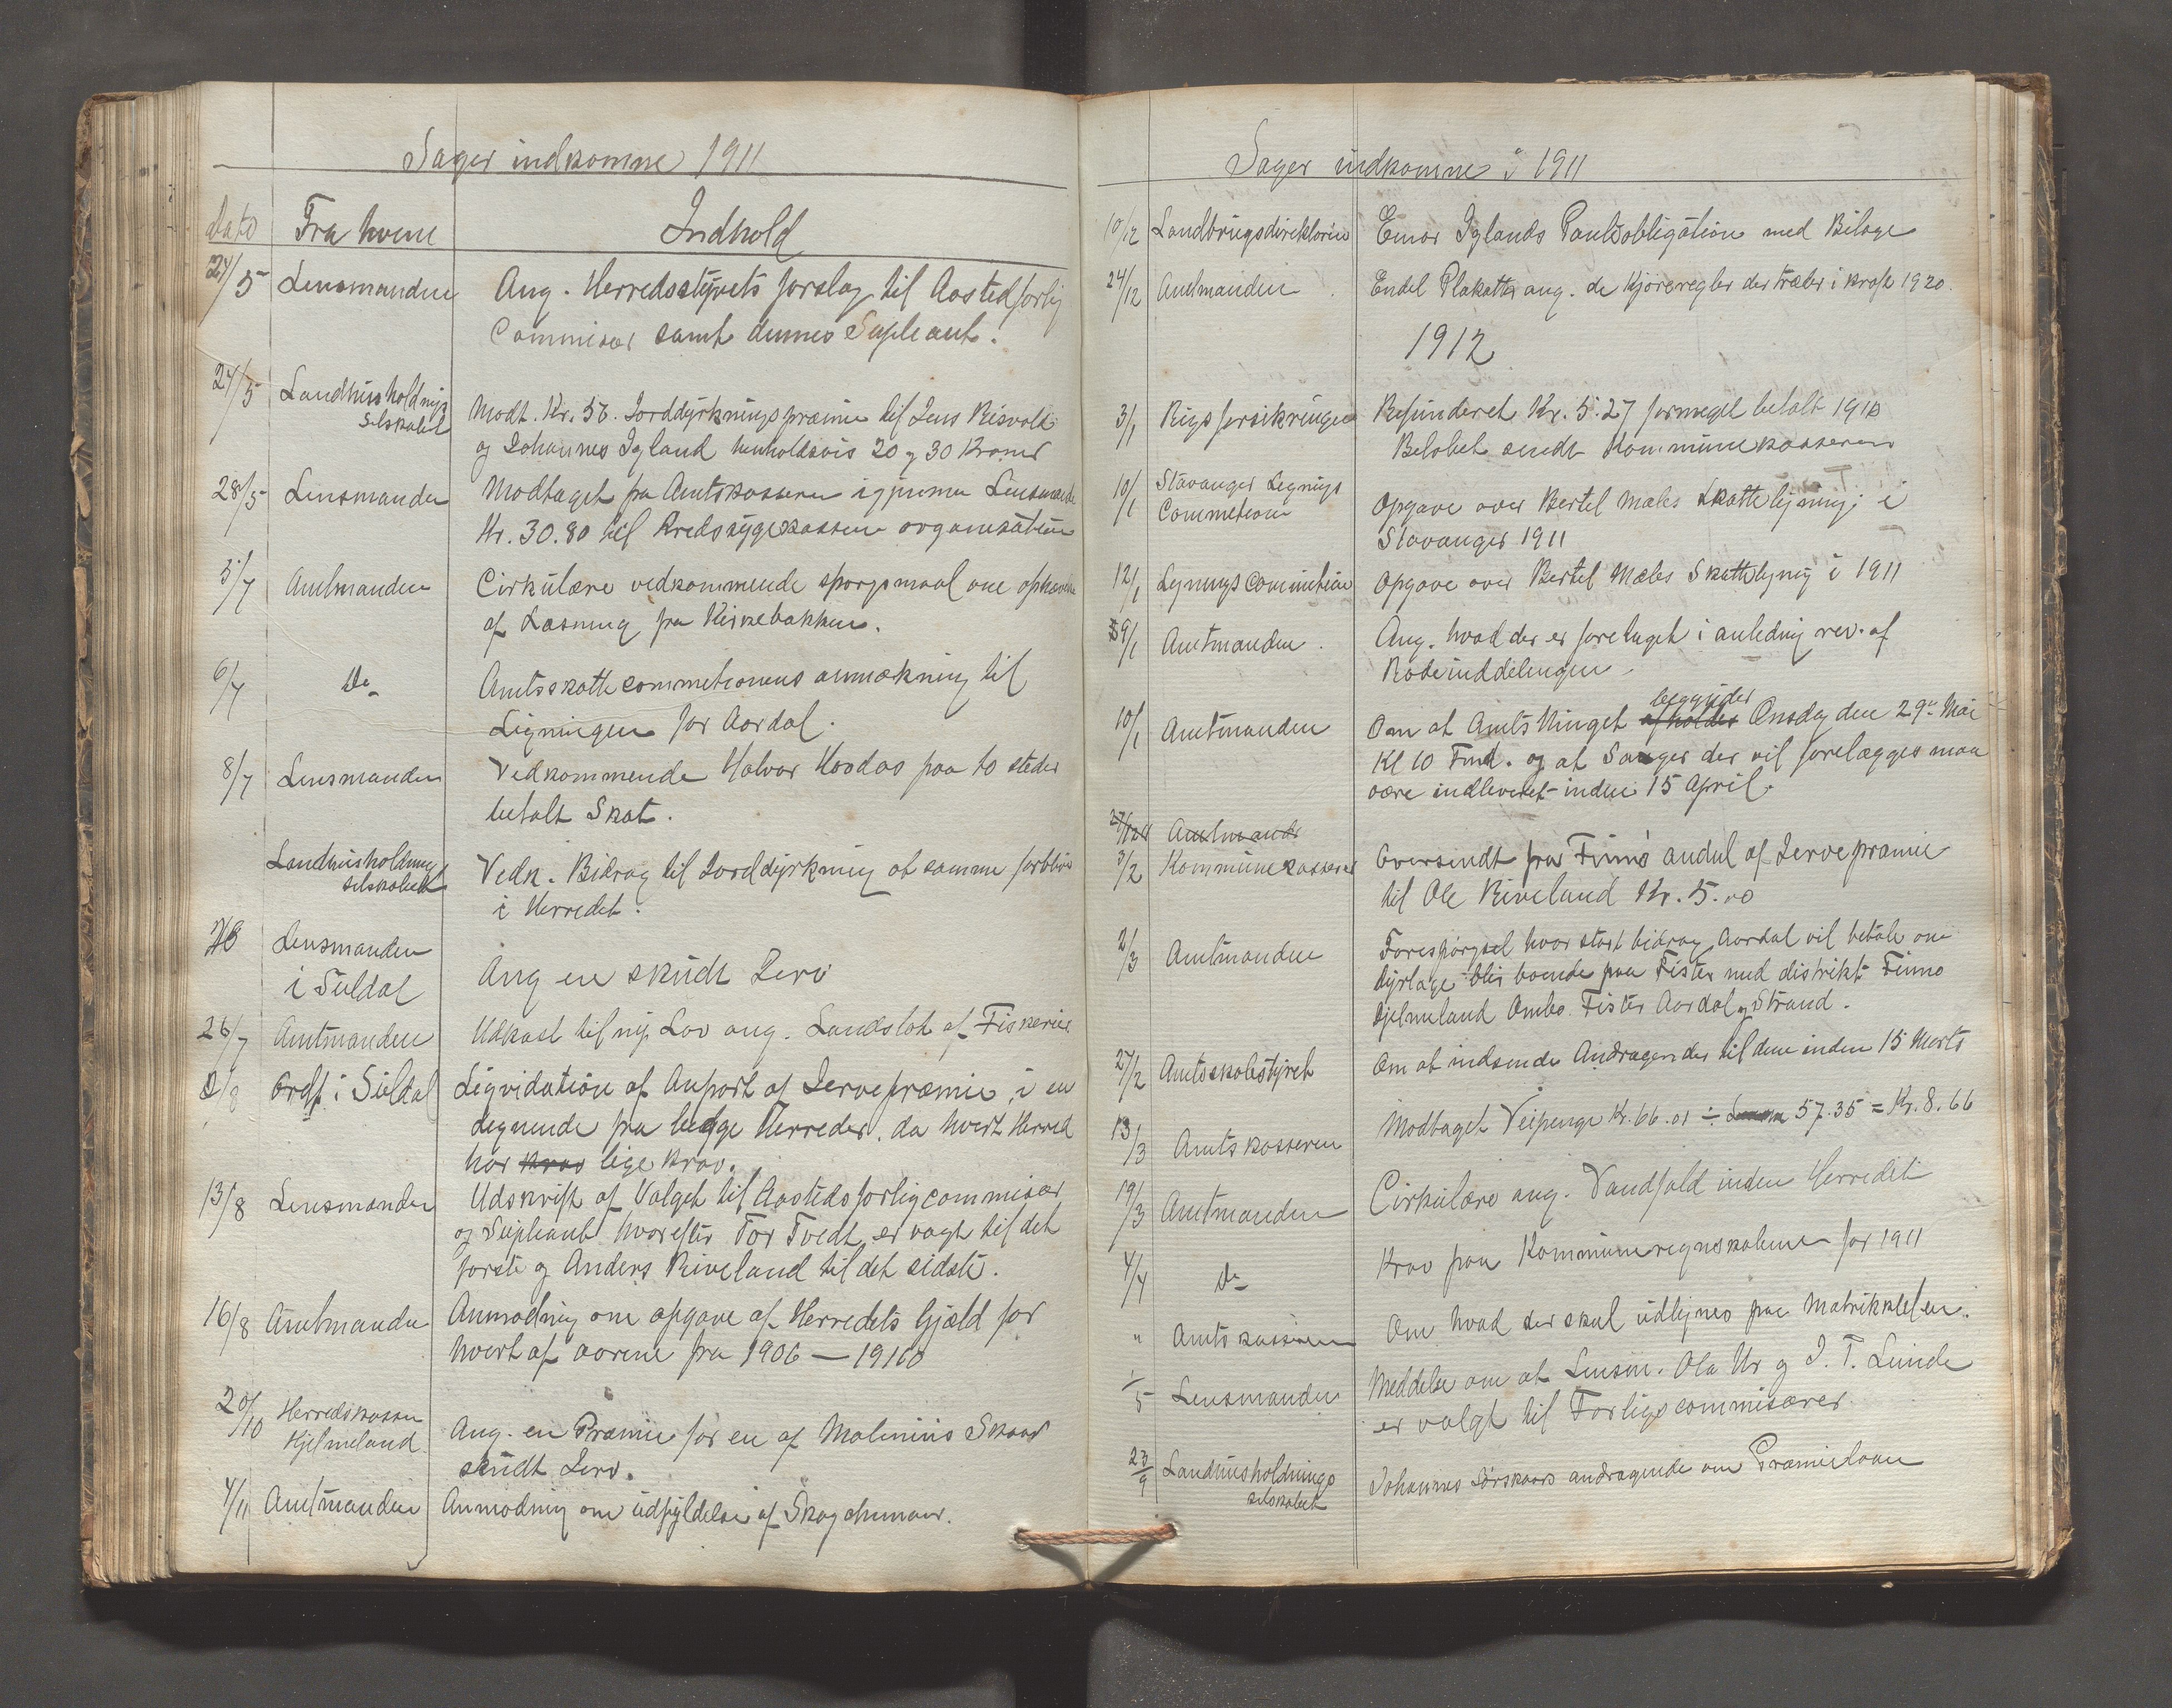 Sager indkomne 1911
Dato Fra hvem Indhold
24/5 Lensmanden Ang. Herredsstyrets forslag til Aastedforlig
Commisær samt dennes Supleant.
24/5 Landhusholdnings
Selskabet Modt. Kr. 50. Jorddyrkningspræmie til Jens Risvold
og Johannes Igland henholdsvis 20 og 30 Kroner
28/5 Lensmanden Modtaget fra Amtskasseren igjennem Lensmanden
Kr. 30.80 til Kredssygekassens organisation
5/7 Amtmanden Cirkulære vedkommende sporgsmaal om ophævelse
af Læsning fra Kirkebakken.
6/7 Do Amtsskattecommetionens anmærkning til
Ligningen for Aardal.
8/7 Lensmanden Vedkommende Halvor Hovdas paa to steder
betalt Skat.
Landhusholdnings
selskabet Vedk. Bidrag til Jorddyrkning at samme forblir
i Herredet.
Lensmanden
i Suldal Ang en skudt Jerv
26/7 Amtmanden Udkast til ny Lov ang. Landslot af Fiskerier
2/8 Ordf i Suldal Ligvidation af Anport af Jervepræmie, i en
lignende fra begge Herreder, da hvert Herred
har krav lige krav.
13/8 Lensmanden Udskrift af Valget til Aastedsforligcommisær
og Supleant hvorefter Tor Tvedt er vagt til det
forste og Anders Riveland til det sidste.
16/8 Amtmanden Anmodning om opgave af Herredets Gjæld for
hvert af aarene fra 1906 — 1910
20/10 Herredskassen
Hjelmeland Ang. en Præmie for en af Malinius Skaar
skudt Jerv.
4/11 Amtmanden Anmodning om udfyldelse af Skogchemaer.
Sager indkomne i 1911
10/12 Landbrugsdirektøren Einar Iglands Panteobligation med Bilage
24/12 Amtmanden Endel Plakatter ang. de Kjøreregler der træder i kraft 1920.
1912
3/1 Rigsforsikringen Refunderet Kr. 5.27 formeget betalt 1910
Belobet sendt Kommunekasseren
10/1 Stavanger Legnings
Commetion Opgave over Bertel Mæles Skattelejning i
Stavanger 1911
12/1 Legningscommetion Opgave over Bertel Mæles Skattelegnig i 1911
9/1 Amtmanden. Ang. hvad der er foretaget i anledning rev. af
Rodeinddelingen
10/1 Amtmanden Om at Amtsthinget afholdes begynder Onsdag den 29de Mai
Kl 10 Fmd. og at Sager der vil forelægges maa
være indleveret inden 15 April.
Amtmand
3/2 Kommunekasserer Oversendt fra Finnø andel af Jervepræmie
til Ole Riveland Kr. 5.00
2/3 Amtmanden Forespørgsel hvor stort bidrag Aardal vil betale om
dyrlæge blir boende paa Fister med distrikt Finnø
Hjelmeland Ombo Fister Aardal og Strand.
27/2 Amtsskolestyret Om at indsende Andragender til dem inden 15 Marts
13/3 Amtskasseren Modtaget Veipenge Kr. 66.01 ÷ 57.35 = Kr. 8.66
19/3 Amtmanden Cirkulære ang. Vandfald inden Herredet
4/4 Do Krav paa Kommuneregnskabene for 1911
" Amtskasseren Om hvad der skal udlignes paa Matrikkelen.
1/5 Lensmanden Meddelse om at Lensm. Ola Ur og J. T. Lunde
er valgt til Forligscommisærer
23/9 Landhusholdnings
selskabet Johannes Sørskaars andragende om Præmielaan